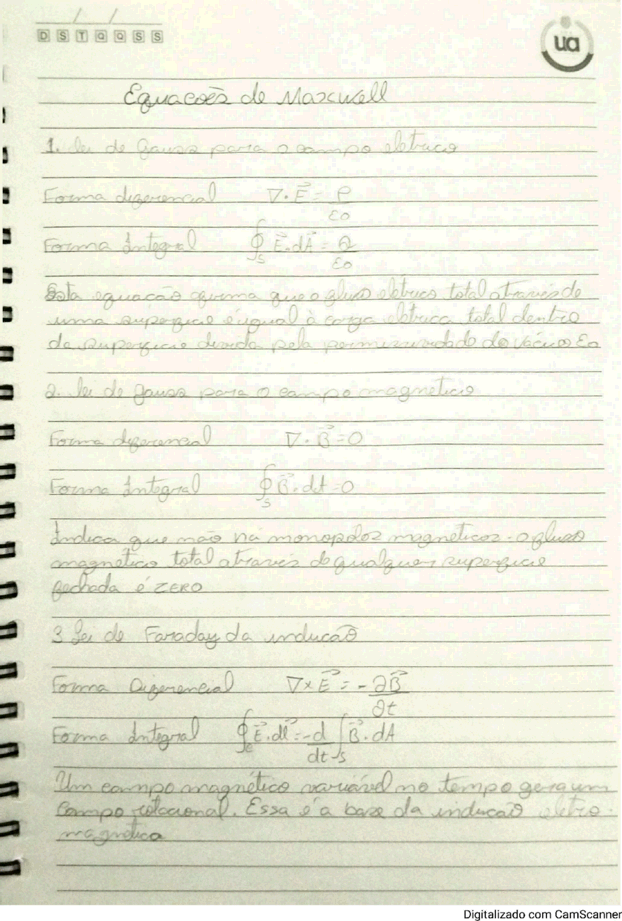 D S T Q Q S S
ua
Equacoēs de Maxwell
1. Lei de Gauss para o campo eletrico
Forma diferencial ∇·E⃗ = ρ/ε0
Forma Integral ∮S E⃗·dA⃗ = Q/ε0
Esta equação afirma que o fluxo eletrico total através de
uma superficie é igual à carga eletrica total dentro
da superficie divida pela permissividade do vácuo εo
2. lei de gauss para o campo magnético
Forma diferencial ∇·B⃗ = 0
Forma Integral ∮S B⃗·dA = 0
Indica que não há monopolos magnéticos - o fluxo
magnético total através de qualquer superficie
fechada é ZERO
3 Lei de Faraday da indução
Forma Diferencial ∇×E⃗ = -∂B⃗/∂t
Forma Integral ∮c E⃗·dl⃗ = -d/dt ∫S B⃗·dA
Um campo magnético variável no tempo gera um
campo rotacional. Essa é a base da indução eletro-
magnética
Digitalizado com CamScanner